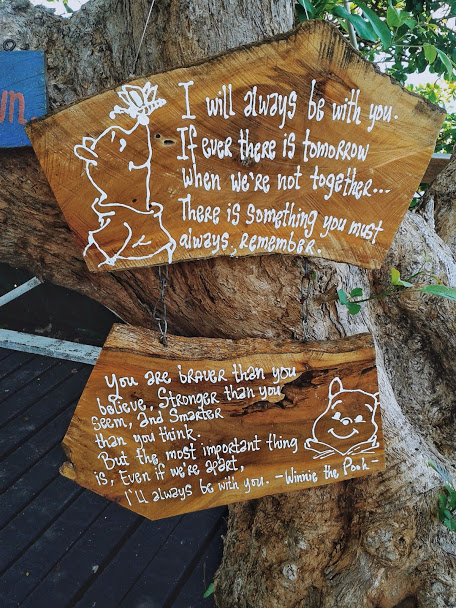 wn.
I will always be with you.
If ever there is tomorrow
when we're not together...
There is something you must
always, remember.
You are braver than you
believe, Stronger than you
seem, and Smarter
than you think.
But the most important thing
is, Even if we're apart,
I'll always be with you. -Winnie the Pooh-